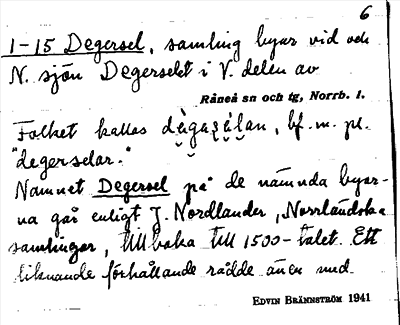 6
1-15 Degersel, samling byar vid och
N. sjön Degerselet i V. delen av
Råneå sn och tg, Norrb. l.
Folket kallas dègasélan, bf. m. pl.
"degerselar."
Namnet Degersel på de nämnda byar-
na går enligt J. Nordlander, "Norrländska
samlingar, tillbaka till 1500-talet. Ett
liknande förhållande rådde även med
EDVIN BRÄNNSTRÖM 1941